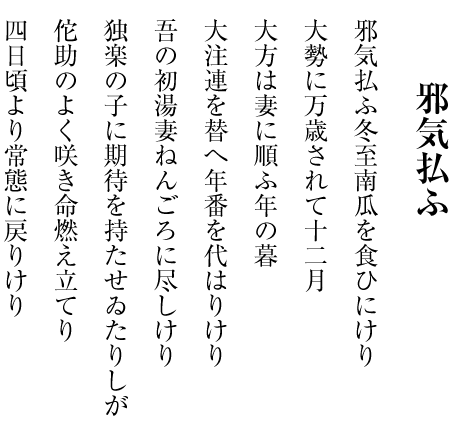 邪気払ふ
邪気払ふ冬至南瓜を食ひにけり
大勢に万歳されて十二月
大方は妻に順ふ年の暮
大注連を替へ年番を代はりけり
吾の初湯妻ねんごろに尽しけり
独楽の子に期待を持たせゐたりしが
侘助のよく咲き命燃え立てり
四日頃より常態に戻りけり